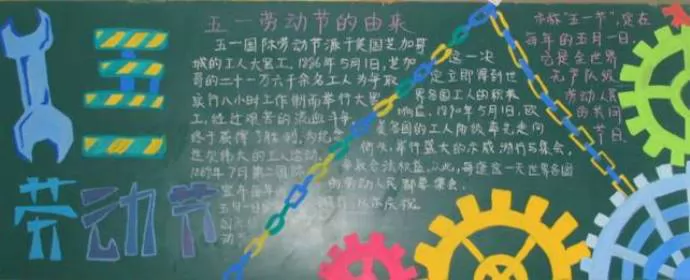 五一劳动节的由来
五一国际劳动节源于美国芝加哥
城的工人大罢工。1886年5月1日,芝加
哥的二十一万六千余名工人为争取
实行八小时工作制而举行大罢
工,经过艰苦的流血斗争,
终于获得了胜利。为纪念
这次伟大的工人运动,
1889年7月第二国际
宣布
五月一日
这一决
定立即得到世
界各国工人的积极
响应。1890年5月1日,欧
美各国的工人阶级率先走向
街头,举行盛大的示威游行与集会,
争取合法权益。从此,每逢这一天世界各国
的劳动人民都要集会、
游行,以示庆祝
亦称"五一节",定在
每年的五月一日。
它是全世界
无产阶级、
劳动人民
的共同
节日。
五一
劳动节